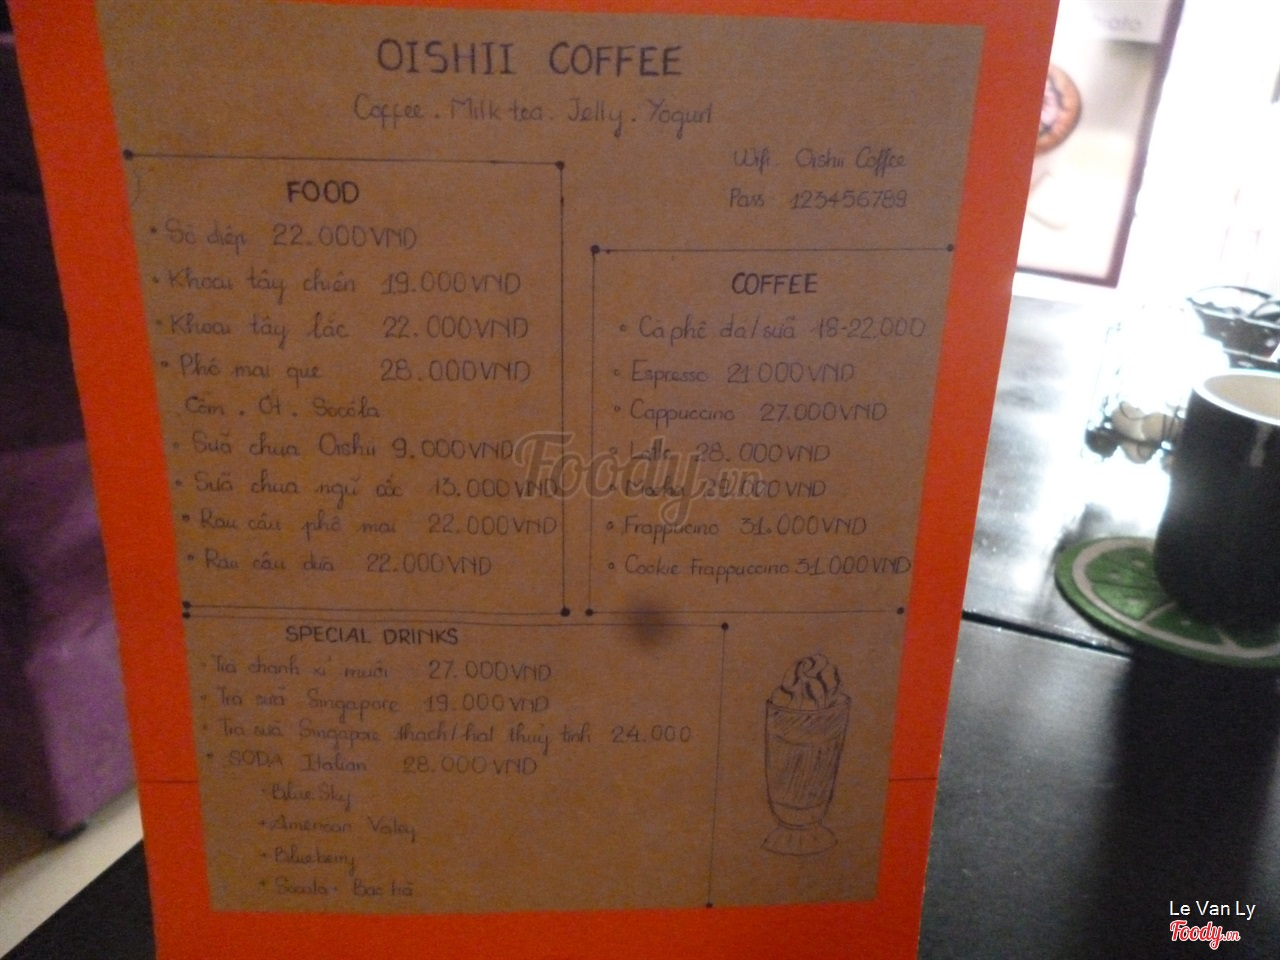 OISHII COFFEE
Coffee . Milk tea . Jelly . Yogurt
Wifi Oishii Coffee
Pass 123456789
FOOD
Sò điệp 22.000VND
Khoai tây chiên 19.000VND
Khoai tây lắc 22.000VND
Phô mai que 28.000VND
Cốm . Ớt . Socola
Sữa chua Oishii 9.000VND
Sữa chua ngũ cốc 13.000VND
Rau câu phô mai 22.000VND
Rau câu dừa 22.000VND
COFFEE
Cà phê đá/sữa 18-22.000
Espresso 21.000VND
Cappuccino 27.000VND
Latte 28.000VND
Mocha 29.000VND
Frappucino 31.000VND
Cookie Frappuccino 31.000VND
SPECIAL DRINKS
Trà chanh xí muội 27.000VND
Trà sữa Singapore 19.000VND
Trà sữa Singapore thạch/hạt thủy tinh 24.000
SODA Italian 28.000VND
Blue Sky
American Valey
Blueberry
Socola - Bạc hà
Foody.vn
Le Van Ly
Foody.vn